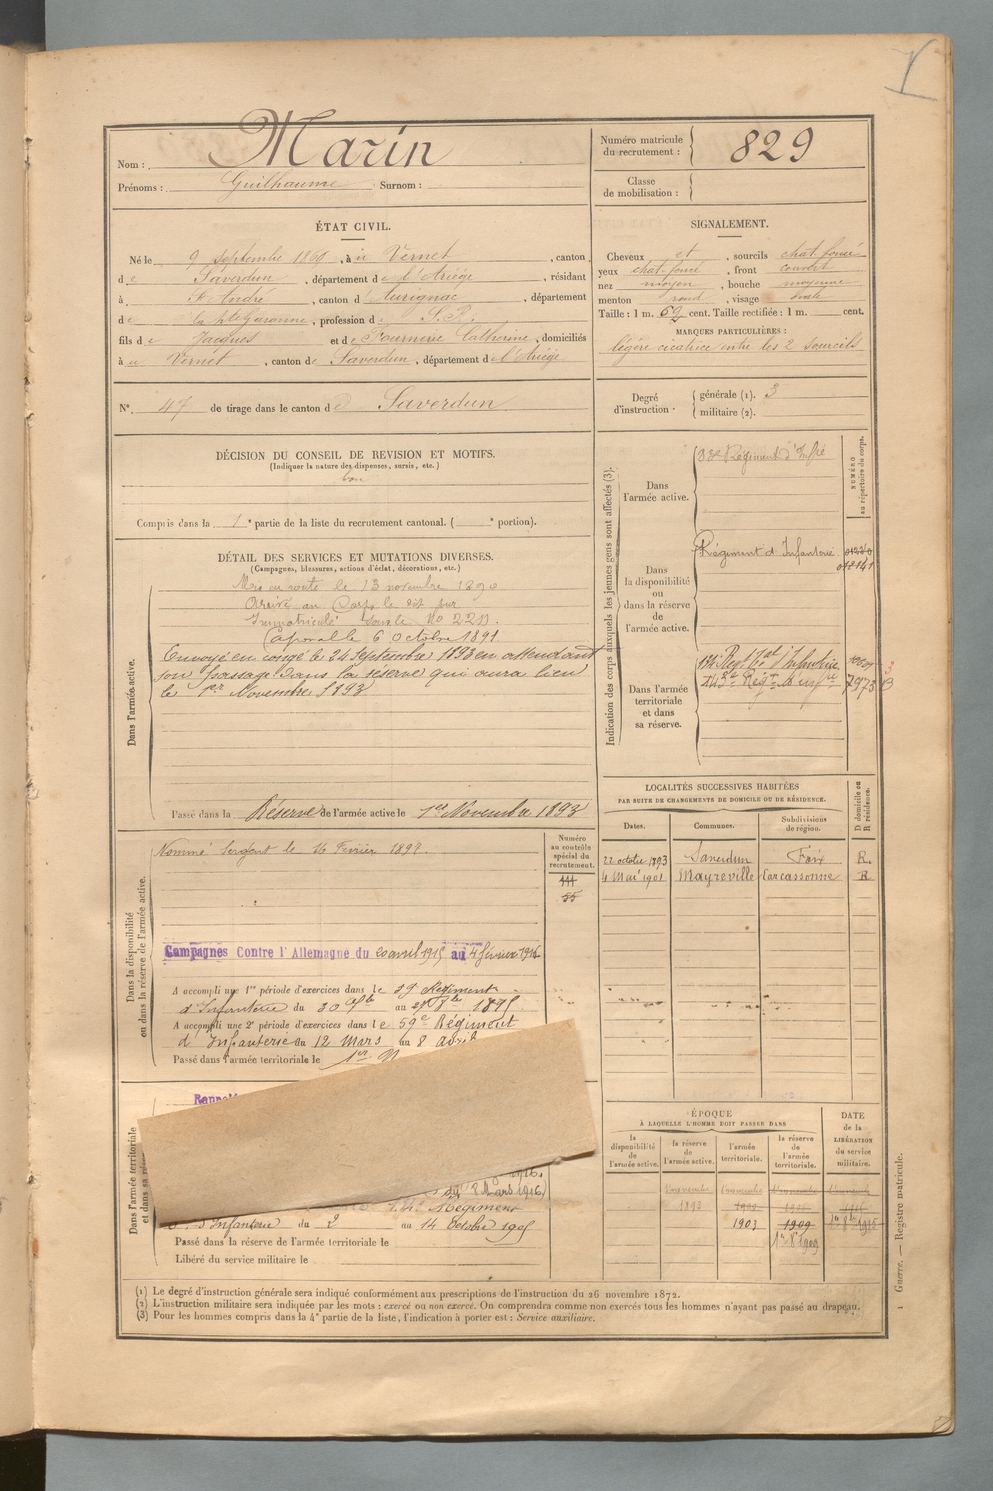 Nom : Marin
Prénoms : Guilhaume Surnom :
Numéro matricule
du recrutement : 829
Classe
de mobilisation :
ÉTAT CIVIL.
Né le 9 septembre 18 , à Vernet , canton
de Saverdun , département de l'Ariège , résidant
à St André , canton d'Aurignac , département
de la Hte Garonne , profession de S. P.
fils de Jacques et de Fournerie Catherine , domiciliés
à Vernet , canton de Saverdun , département de l'Ariège
N° 47 de tirage dans le canton de Saverdun
SIGNALEMENT.
Cheveux et , sourcils chat foncé
yeux chat-foncé , front couvert
nez moyen , bouche moyenne
menton rond , visage ovale
Taille : 1 m. 62 cent. Taille rectifiée : 1 m. cent.
MARQUES PARTICULIÈRES :
légère cicatrice entre les 2 sourcils
Degré
d'instruction
générale (1). 3
militaire (2).
DÉCISION DU CONSEIL DE REVISION ET MOTIFS.
(Indiquer la nature des dispenses, sursis, etc.)
bon
Compris dans la 1e partie de la liste du recrutement cantonal. ( e portion).
DÉTAIL DES SERVICES ET MUTATIONS DIVERSES.
(Campagnes, blessures, actions d'éclat, décorations, etc.)
Dans l'armée active.
Mis en route le 13 novembre 1890
Arrivé au Corps le dit jour
Immatriculé sous le No 2211.
Caporal le 6 octobre 1891
Envoyé en congé le 24 Septembre 1893 en attendant
son passage dans la réserve qui aura lieu
le 1er Novembre 1893
Passé dans la Réserve de l'armée active le 1er Novembre 1893
Indication des corps auxquels les jeunes gens sont affectés (3).
NUMÉRO
au répertoire du corps.
Dans
l'armée active.
Régiment d'Infie
Dans
la disponibilité
ou
dans la réserve
de
l'armée active.
Régiment d'Infanterie
Dans l'armée
territoriale
et dans
sa réserve.
Regt tal d'Infanterie
Régt d'infie 7973
LOCALITÉS SUCCESSIVES HABITÉES
PAR SUITE DE CHANGEMENTS DE DOMICILE OU DE RÉSIDENCE.
Dates. Communes. Subdivisions de région. D domicile ou R résidence.
22 octobre 1893 Saverdun Foix R.
4 Mai 1901 Mayreville Carcassonne R
Dans la disponibilité
ou dans la réserve de l'armée active.
Numéro
au contrôle
spécial du
recrutement.
Nommé Sergent le 16 Février 1897.
55
Campagnes Contre l'Allemagne du 20 avril 1915 au 4 février 1916
A accompli une 1re période d'exercices dans le 59 Régiment
d'Infanterie du 30 7bre au 27 8bre 1895
A accompli une 2e période d'exercices dans le 59e Régiment
d'Infanterie du 12 Mars au 8 avril
Passé dans l'armée territoriale le 1er N
Dans l'armée territoriale
et dans sa rés
Rappelé
1916.
du 8 Mars 1916)
Régiment
d'Infanterie du 2 au 14 Octobre 1905
Passé dans la réserve de l'armée territoriale le
Libéré du service militaire le
ÉPOQUE
À LAQUELLE L'HOMME DOIT PASSER DANS
DATE
de la
LIBÉRATION
du service
militaire.
la disponibilité de l'armée active. la réserve de l'armée active. l'armée territoriale. la réserve de l'armée territoriale.
1893
1903 1909
(1) Le degré d'instruction générale sera indiqué conformément aux prescriptions de l'instruction du 26 novembre 1872.
(2) L'instruction militaire sera indiquée par les mots : exercé ou non exercé. On comprendra comme non exercés tous les hommes n'ayant pas passé au drapeau.
(3) Pour les hommes compris dans la 4e partie de la liste, l'indication à porter est : Service auxiliaire.
1 Guerre. — Registre matricule.